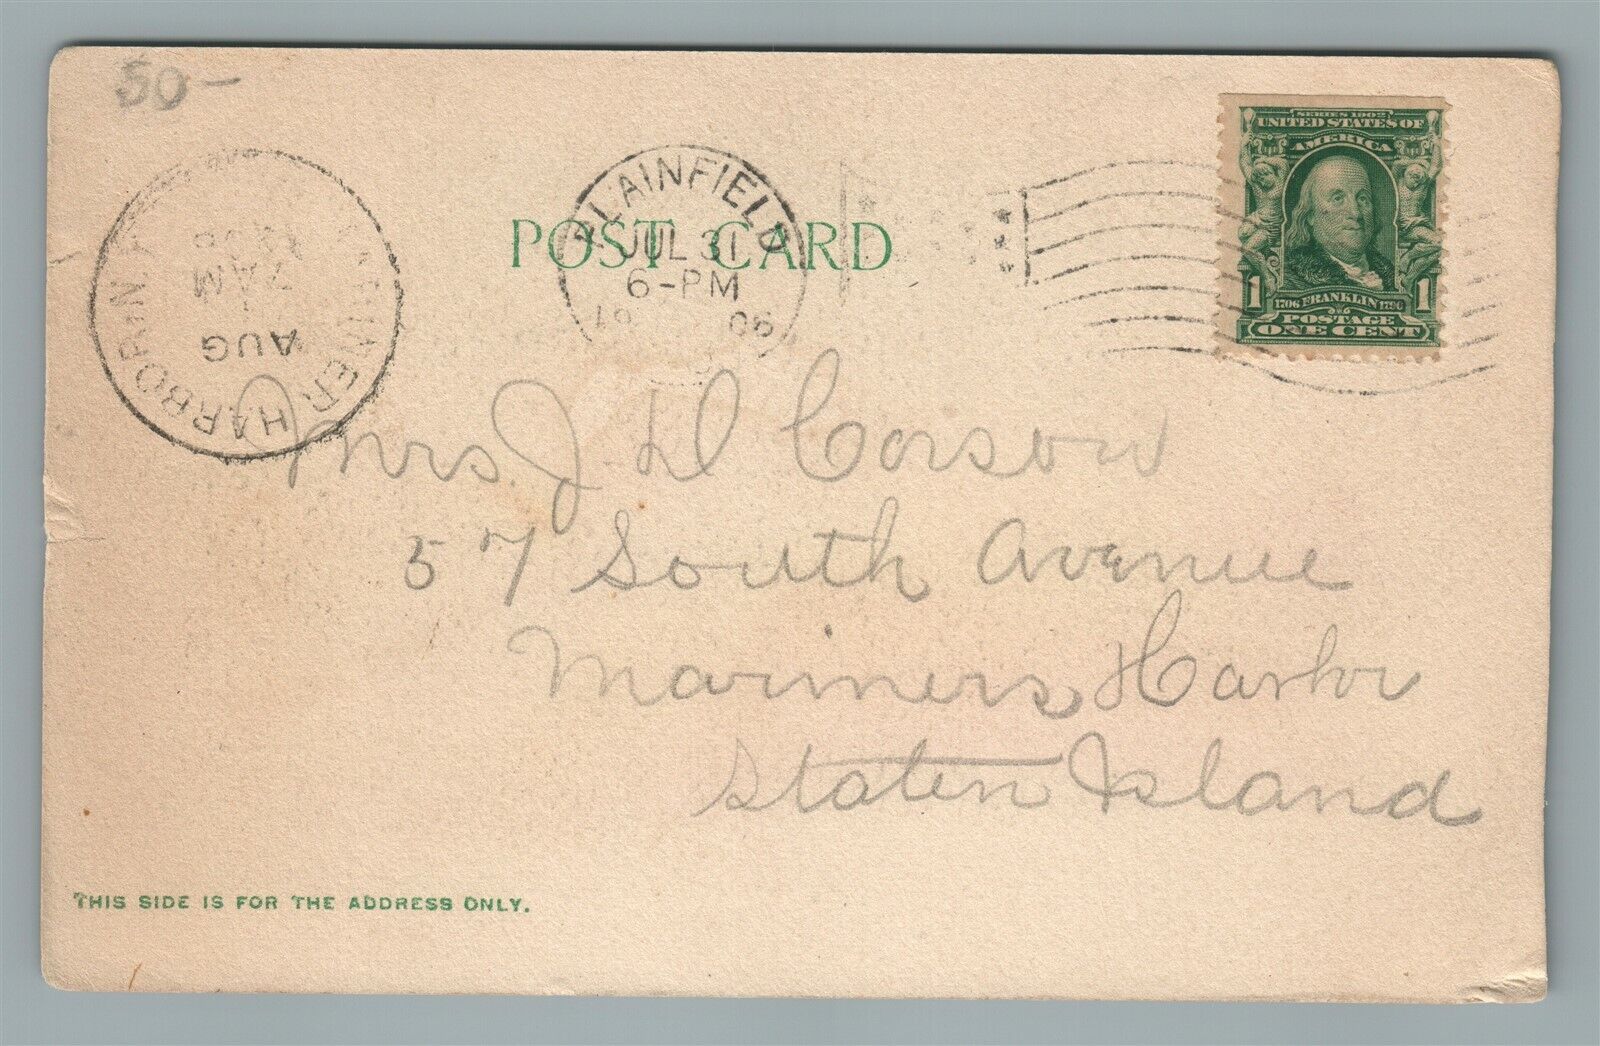 50-
SERIES 1902
UNITED STATES OF
AMERICA
1 1
1706 FRANKLIN 1790
POSTAGE
ONE CENT
PLAINFIELD
JUL 31
6-PM
19 06
POST CARD
MARINER HARBOR N
AUG
1
7 AM
Mrs. J D Corson
57 South Avenue
Mariners Harbor
Staten Island
THIS SIDE IS FOR THE ADDRESS ONLY.